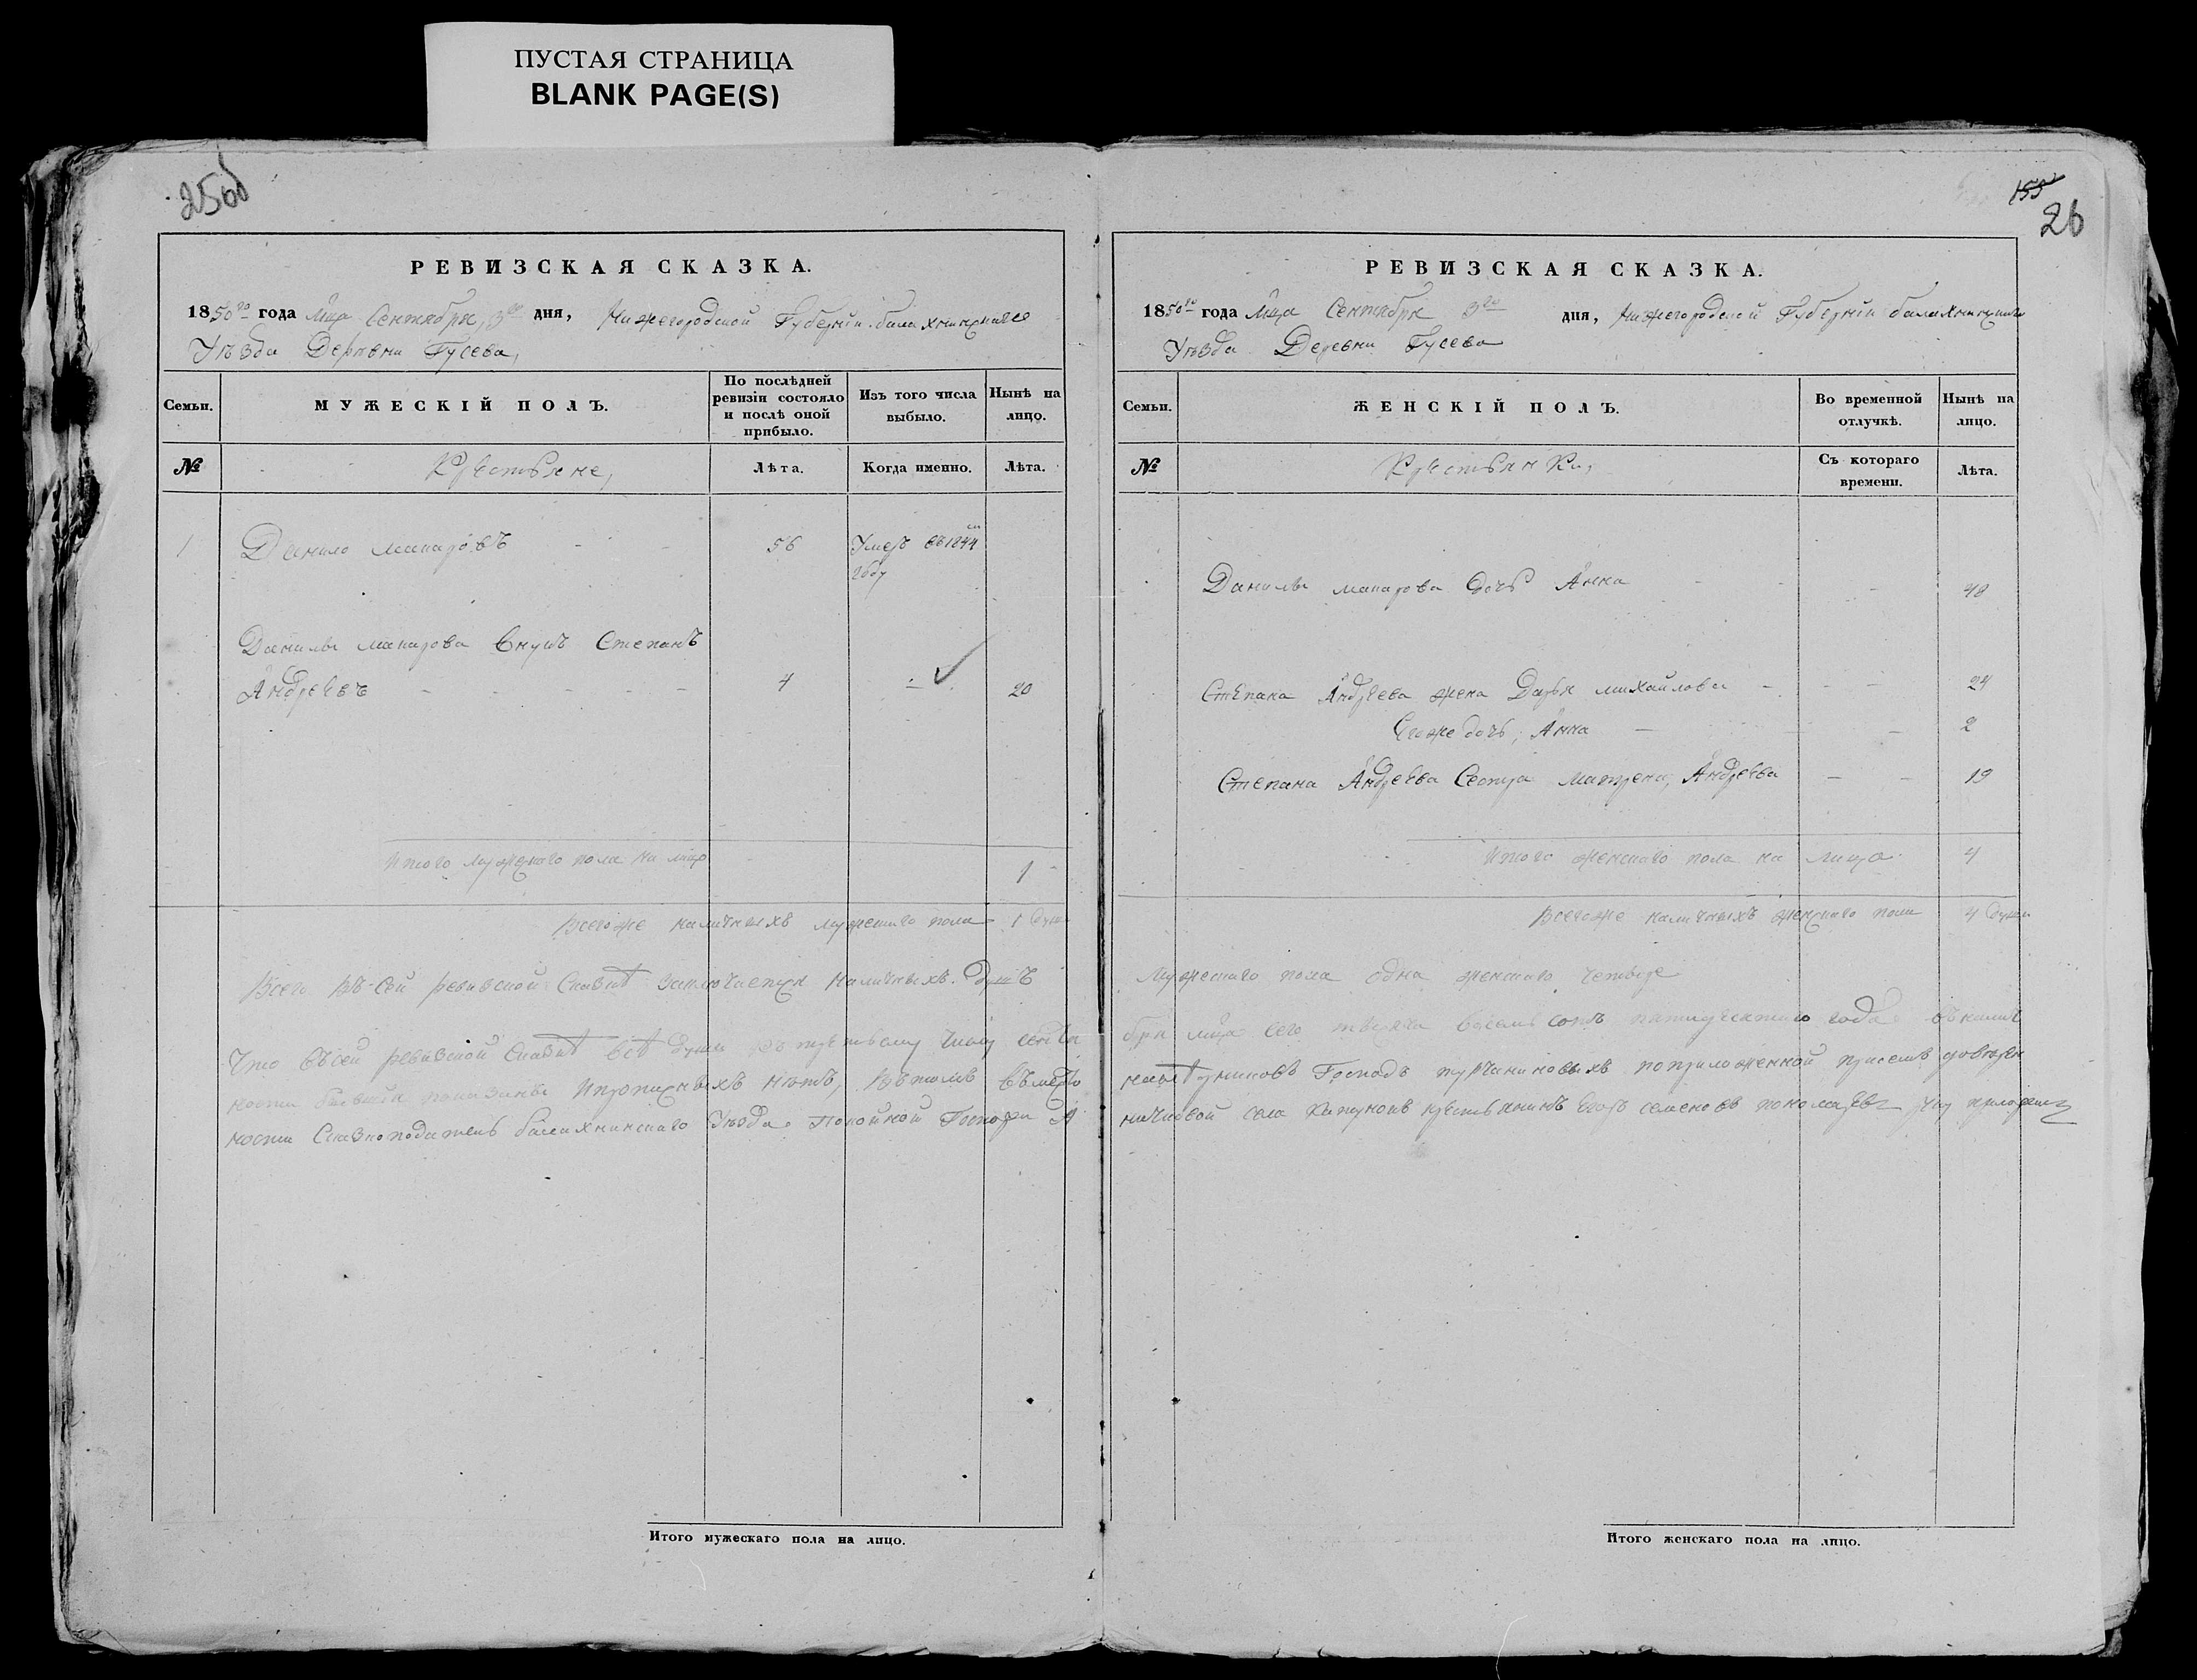 ПУСТАЯ СТРАНИЦА
BLANK PAGE(S)
25об
РЕВИЗСКАЯ СКАЗКА.
1850го года Мца Сентября 3го дня, Нижегородской Губерніи балахнинскаго
Уѣзда Деревни Гусева,
Семьи.
МУЖЕСКІЙ ПОЛЪ.
По послѣдней ревизіи состояло и послѣ оной прибыло.
Изъ того числа выбыло.
Нынѣ на лицо.
№
Крестьяне,
Лѣта.
Когда именно.
Лѣта.
1 Данило макаровъ - - 56 Умеръ въ 1844м
году
Данилы макарова внукъ Степанъ
Андреевъ - - - - - 4 - 20
Итого мужескаго пола на лицо 1
Всегоже наличныхъ мужескаго пола 1 душа
Всего въ сей ревизской Сказкѣ заключается наличныхъ душъ
Что въ сей ревизской Сказкѣ всѣ души
показаны И прописныхъ нѣтъ, въ томъ
Сказкоподатель балахнинскаго Уѣзда Покойной
155
26
РЕВИЗСКАЯ СКАЗКА.
1850го года Мца Сентября 3го дня, Нижегородской Губерніи балахнинскаго
Уѣзда Деревни Гусева
Семьи.
ЖЕНСКІЙ ПОЛЪ.
Во временной отлучкѣ.
Нынѣ на лицо.
№
Крестьянки,
Съ котораго времени.
Лѣта.
Данилы макарова дочь Анна - - - 48
Степана Андреева жена Дарья михайлова - - - 24
Егоже дочь, Анна - - - 2
Степана Андреева Сестра матрена, Андреева - - 19
Итого женскаго пола на лицо 4
Всегоже наличныхъ женскаго пола 4 души
Мужескаго пола одна женскаго четыре
бря мца сего тысяча восемь сотъ пятидесятаго года
Господъ турчаниновыхъ по приложенной при семъ
села Катунокъ крестьянинъ Егоръ семеновъ пономаревъ руку
Итого мужескаго пола на лицо.
Итого женскаго пола на лицо.